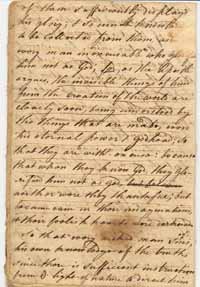 of them sufficiently display
his glory; & so much knowle
to be Collected from them as
wou render men inexcusable who
him not as God, for as the Apostle
argues, the invisible things of him
from the creation of the world are
clearly seen, being understood by
the things that are made, even
his eternal power & godhead; so
that they are without excuse: because
that when they knew God, they glo-
rified him not as God,
neither were they thankful; but
became vain in their imaginations,
& their foolish hearts were darkened
So that every wicked man Sins,
his own knowledge of the truth,
since there is Sufficient instruction
from the light of nature to direct him